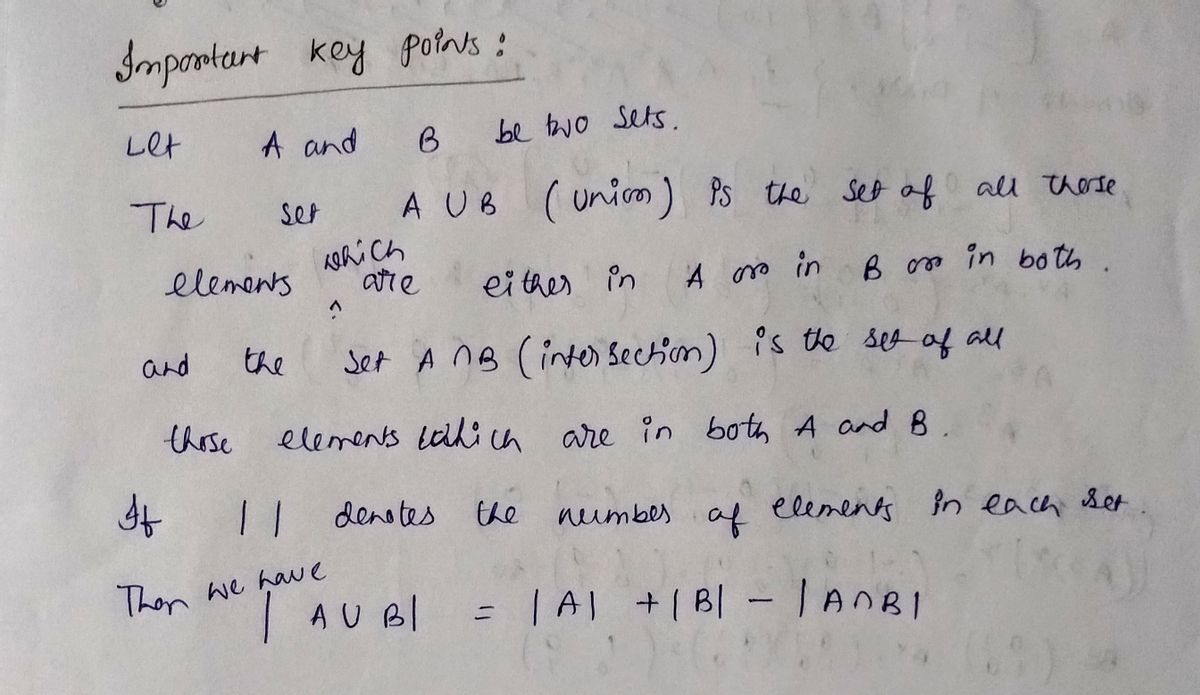 Important key points :
Let A and B be two sets.
The set A ∪ B (union) is the set of all those
elements which are either in A or in B or in both.
and the set A ∩ B (intersection) is the set of all
those elements which are in both A and B.
If | | denotes the number of elements in each set.
Then we have
| A ∪ B| = |A| + |B| − |A∩B|